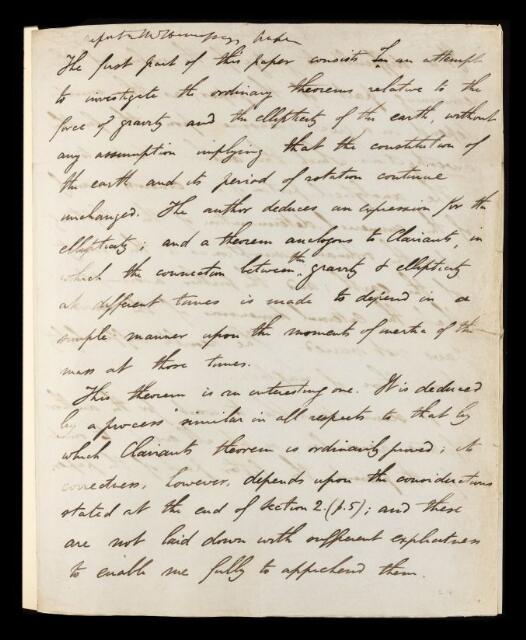 Report on Mr Hennessy's Paper
The first part of this paper consists in an attempt
to investigate the ordinary theorems relative to the
force of gravity and the ellipticity of the earth, without
any assumption implying that the constitution of
the earth and its period of rotation continue
unchanged. The author deduces an expression for the
ellipticity; and a theorem analogous to Clairaut's, in
which the connection between the gravity & ellipticity
at different times is made to depend in a
simple manner upon the moments of inertia of the
mass at those times.
This theorem is an interesting one. It is deduced
by a process similar in all respects to that by
which Clairaut's theorem is ordinarily proved; its
correctness, however, depends upon the considerations
stated at the end of section 2. (p.5); and these
are not laid down with sufficient explicitness
to enable me fully to apprehend them.